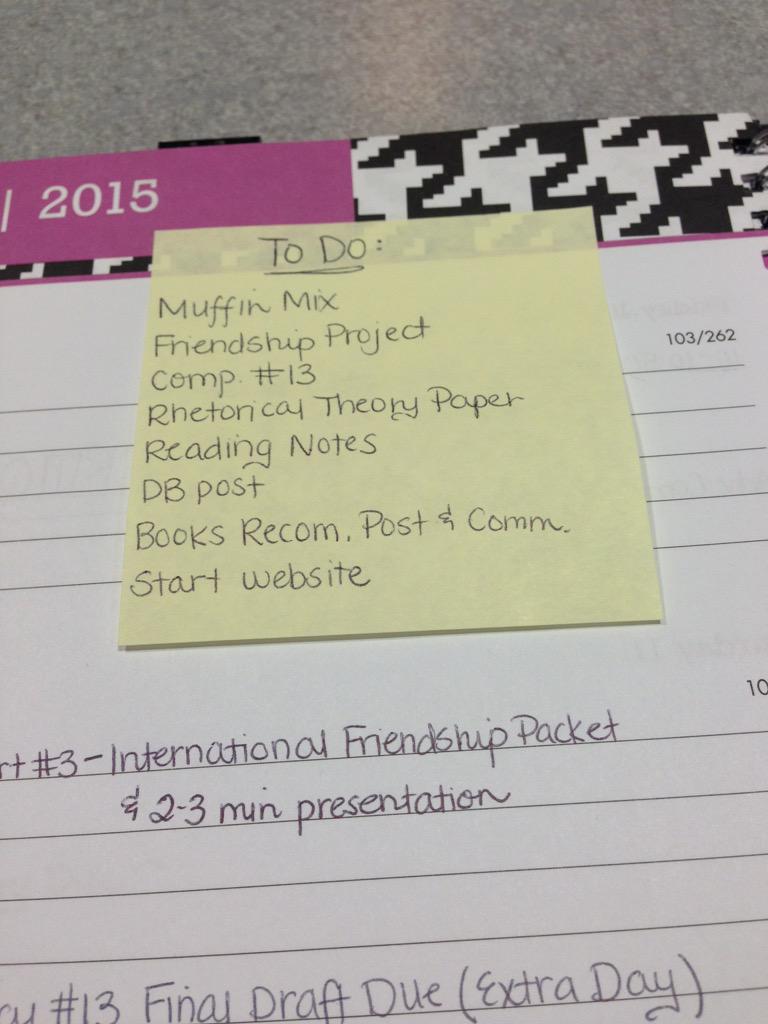 | 2015
To Do:
Muffin Mix
Friendship Project
Comp. #13
Rhetorical Theory Paper
Reading Notes
DB post
Books Recom. Post & Comm.
Start website
103/262
10
rt #3 - International Friendship Packet
& 2-3 min presentation
#13 Final Draft Due (Extra Day)